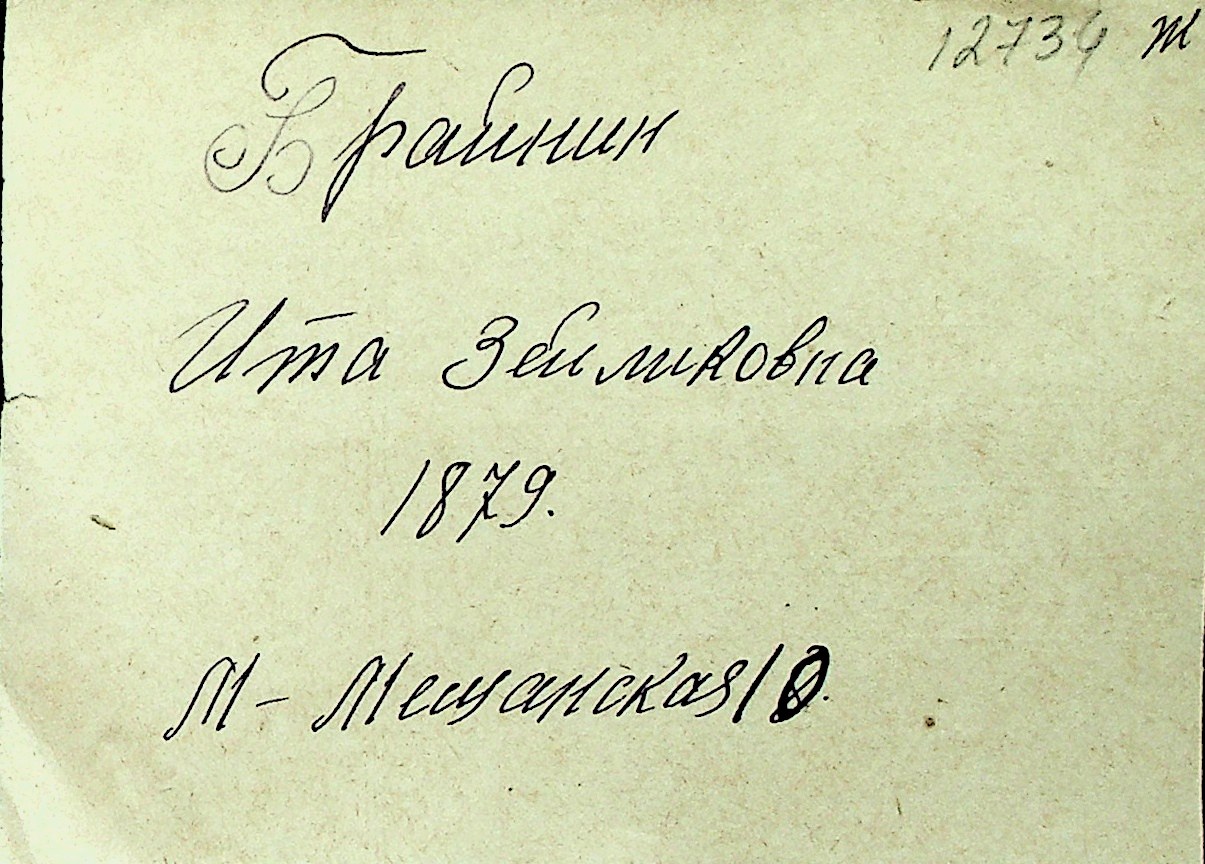 12734 Ж
Брайнин
Ита Зеймковна
1879.
М-Мещанская 10.